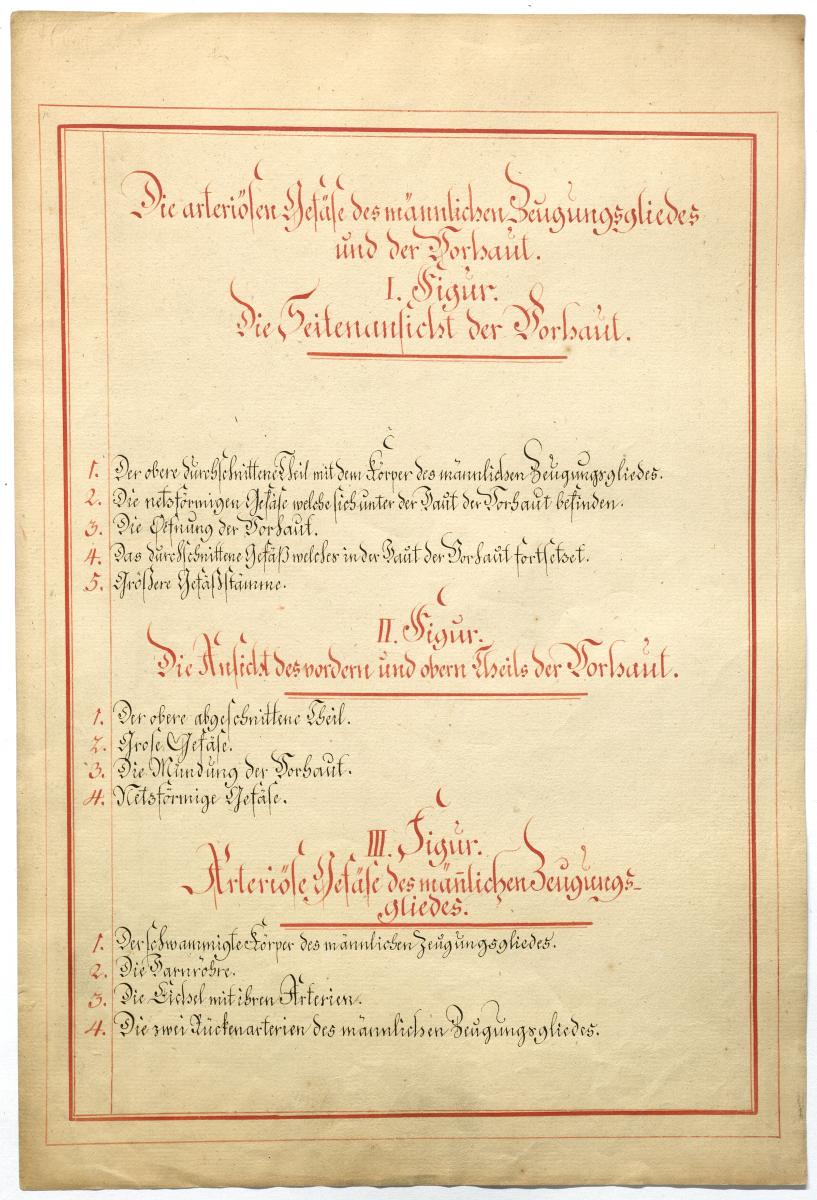 Die arteriösen Gefäse des männlichen Zeugungsgliedes
und der Vorhaut.
I. Figur.
Die Seitenansicht der Vorhaut.
1. Der obere durchschnittene Theil mit dem Körper des männlichen Zeugungsgliedes.
2. Die netsförmigen Gefäse welche sich unter der Haut der Vorhaut befinden.
3. Die Oefnung der Vorhaut.
4. Das durchschnittene Gefäß welches in der Haut der Vorhaut fortsetset.
5. Größere Gefäßstämme.
II. Figur.
Die Ansicht des vordern und obern Theils der Vorhaut.
1. Der obere abgeschnittene Theil.
2. Grose Gefäse.
3. Die Mündung der Vorhaut.
4. Netsförmige Gefäse.
III. Figur.
Arteriöse Gefäse des män̄lichen Zeugungs-
gliedes.
1. Der schwammigte Körper des männlichen Zeugungsgliedes.
2. Die Harnröhre.
3. Die Eichel mit ihren Arterien.
4. Die zwei Rückenarterien des männlichen Zeugungsgliedes.